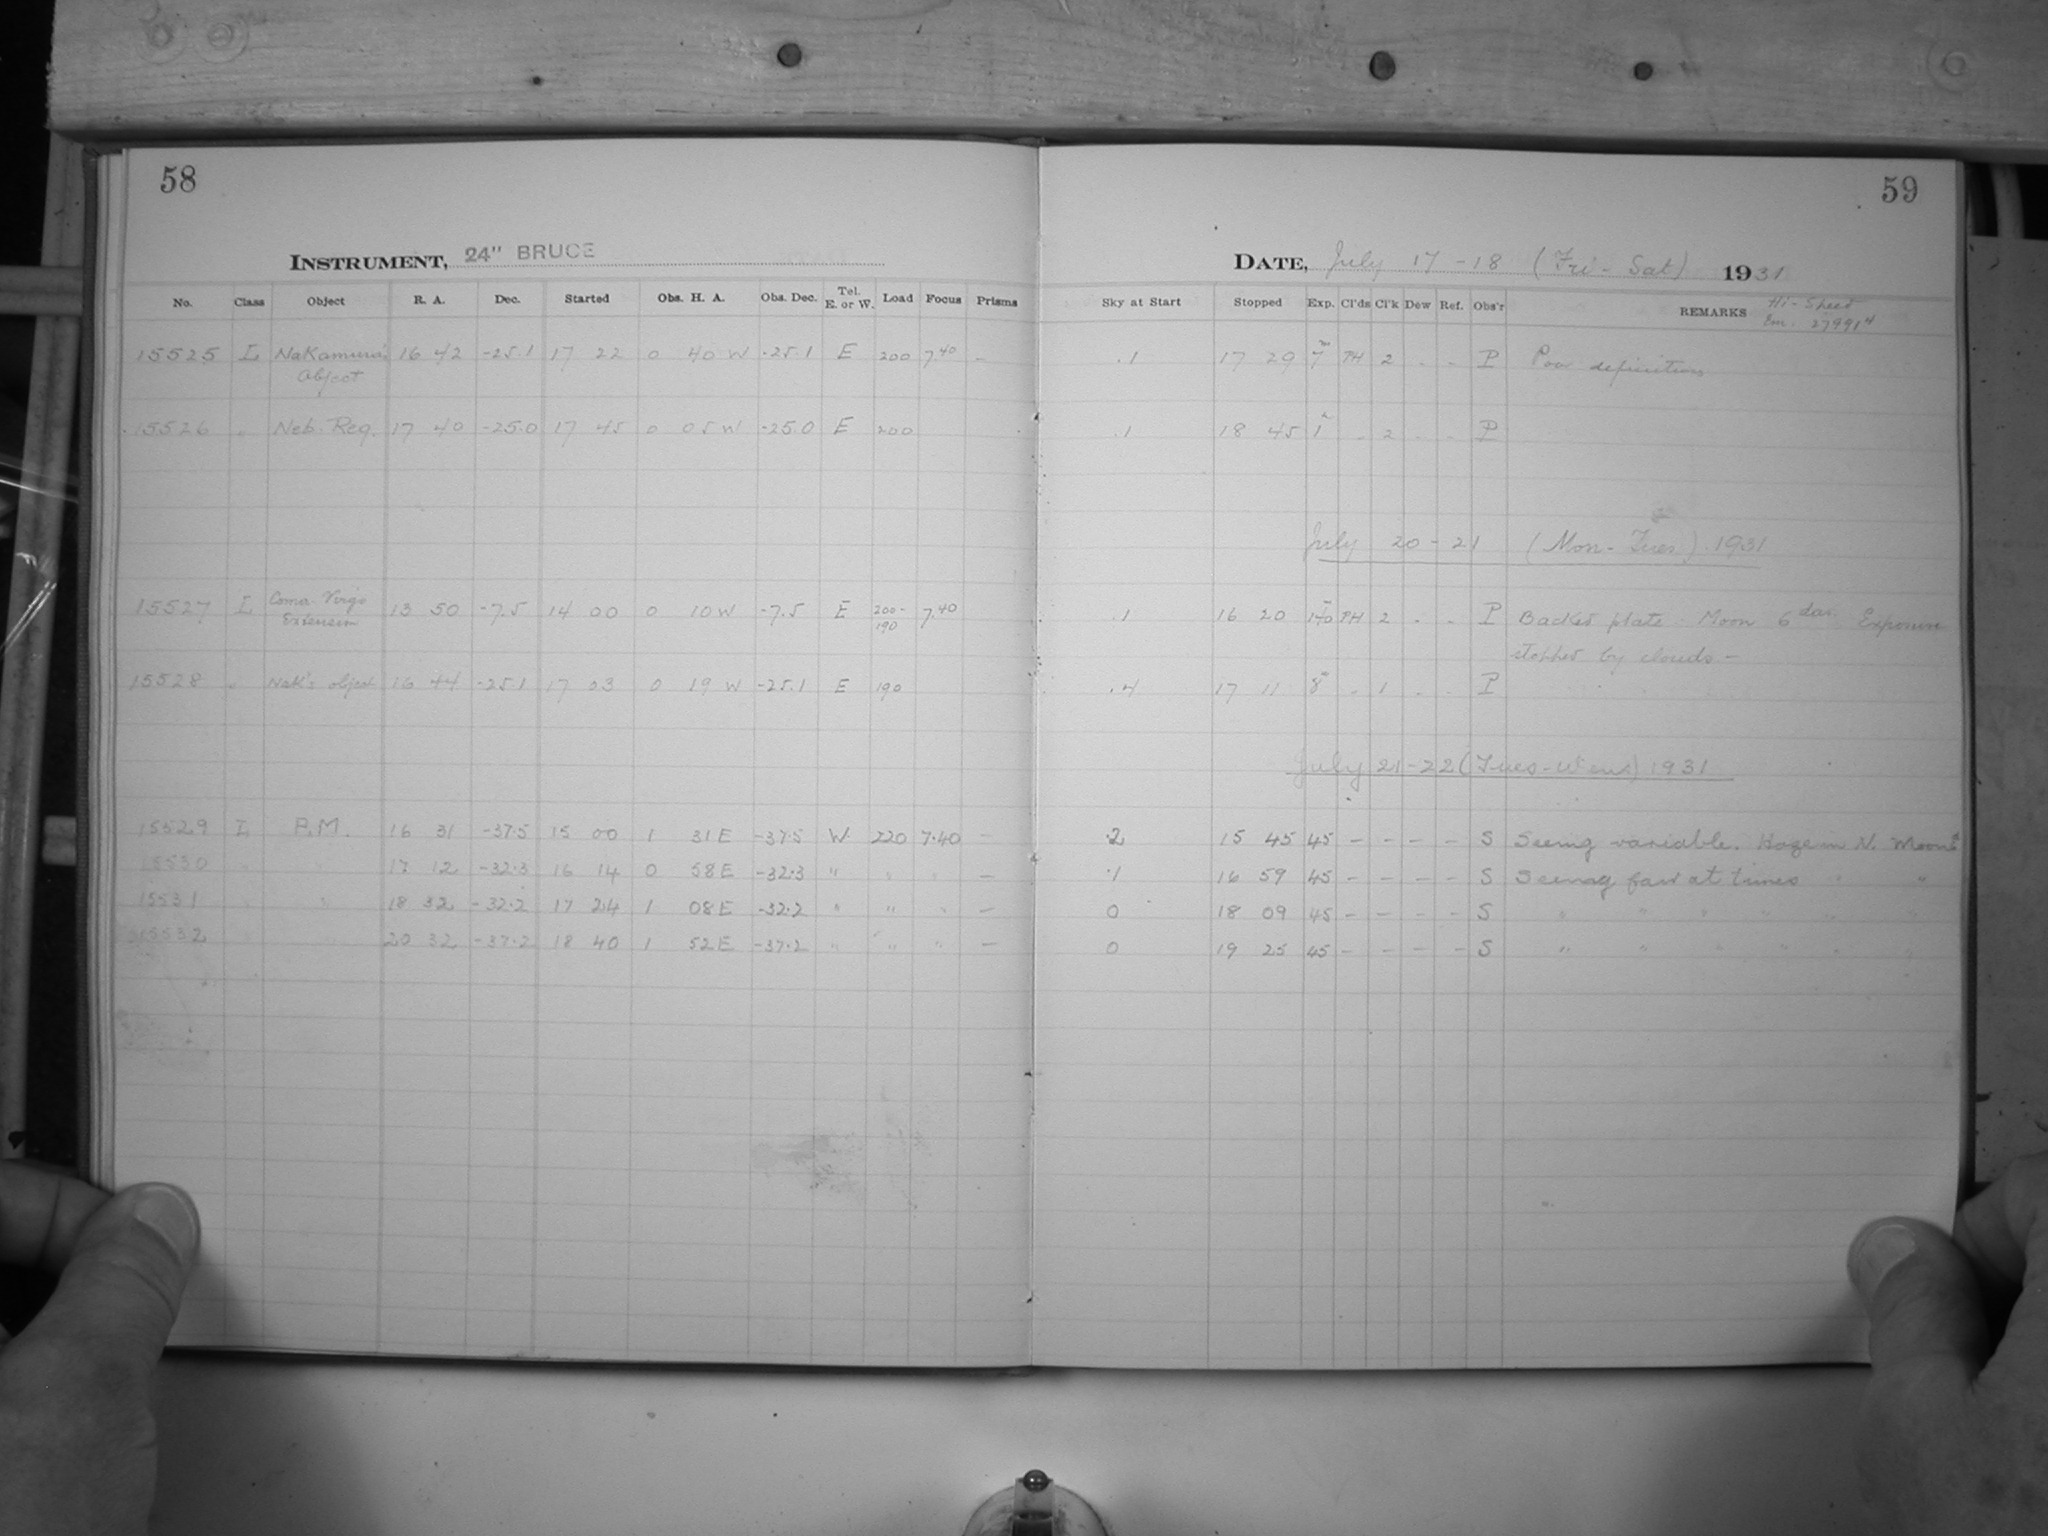 58
INSTRUMENT, 24" BRUCE
No. Class Object R. A. Dec. Started Obs. H. A. Obs. Dec. Tel. E. or W. Load Focus Prisms
15525 L Nakamura's 16 42 -25.1 17 22 0 40 W -25.1 E 200 7.40 -
Object
15526 " Neb. Reg. 17 40 -25.0 17 45 0 05 W -25.0 E 200
15527 L Coma-Virgo 13 50 -7.5 14 00 0 10 W -7.5 E 200- 7.40
Extension 190
15528 " Nak's object 16 44 -25.1 17 03 0 19 W -25.1 E 190
15529 L P.M. 16 31 -37.5 15 00 1 31 E -37.5 W 220 7.40 -
15530 " " 17 12 -32.3 16 14 0 58 E -32.3 " " " -
15531 " " 18 32 -32.2 17 24 1 08 E -32.2 " " " -
15532 " " 20 32 -37.2 18 40 1 52 E -37.2 " " " -
59
DATE, July 17-18 (Fri-Sat) 1931
Sky at Start Stopped Exp. Cl'ds Cl'k Dew Ref. Obs'r REMARKS Hi-Speed
Em. 279914
.1 17 29 7m PH 2 - - P Poor definition
.1 18 45 1h - 2 - - P
July 20-21 (Mon-Tues) 1931
.1 16 20 140 PH 2 - - P Backed plate. Moon 6 day. Exposure
stopped by clouds -
.4 17 11 8m - 1 - - P
July 21-22 (Tues-Wens) 1931
.2 15 45 45 - - - - S Seeing variable. Haze in N. Moonlt
.1 16 59 45 - - - - S Seeing fair at times " "
0 18 09 45 - - - - S " " " " " "
0 19 25 45 - - - - S " " " " " "